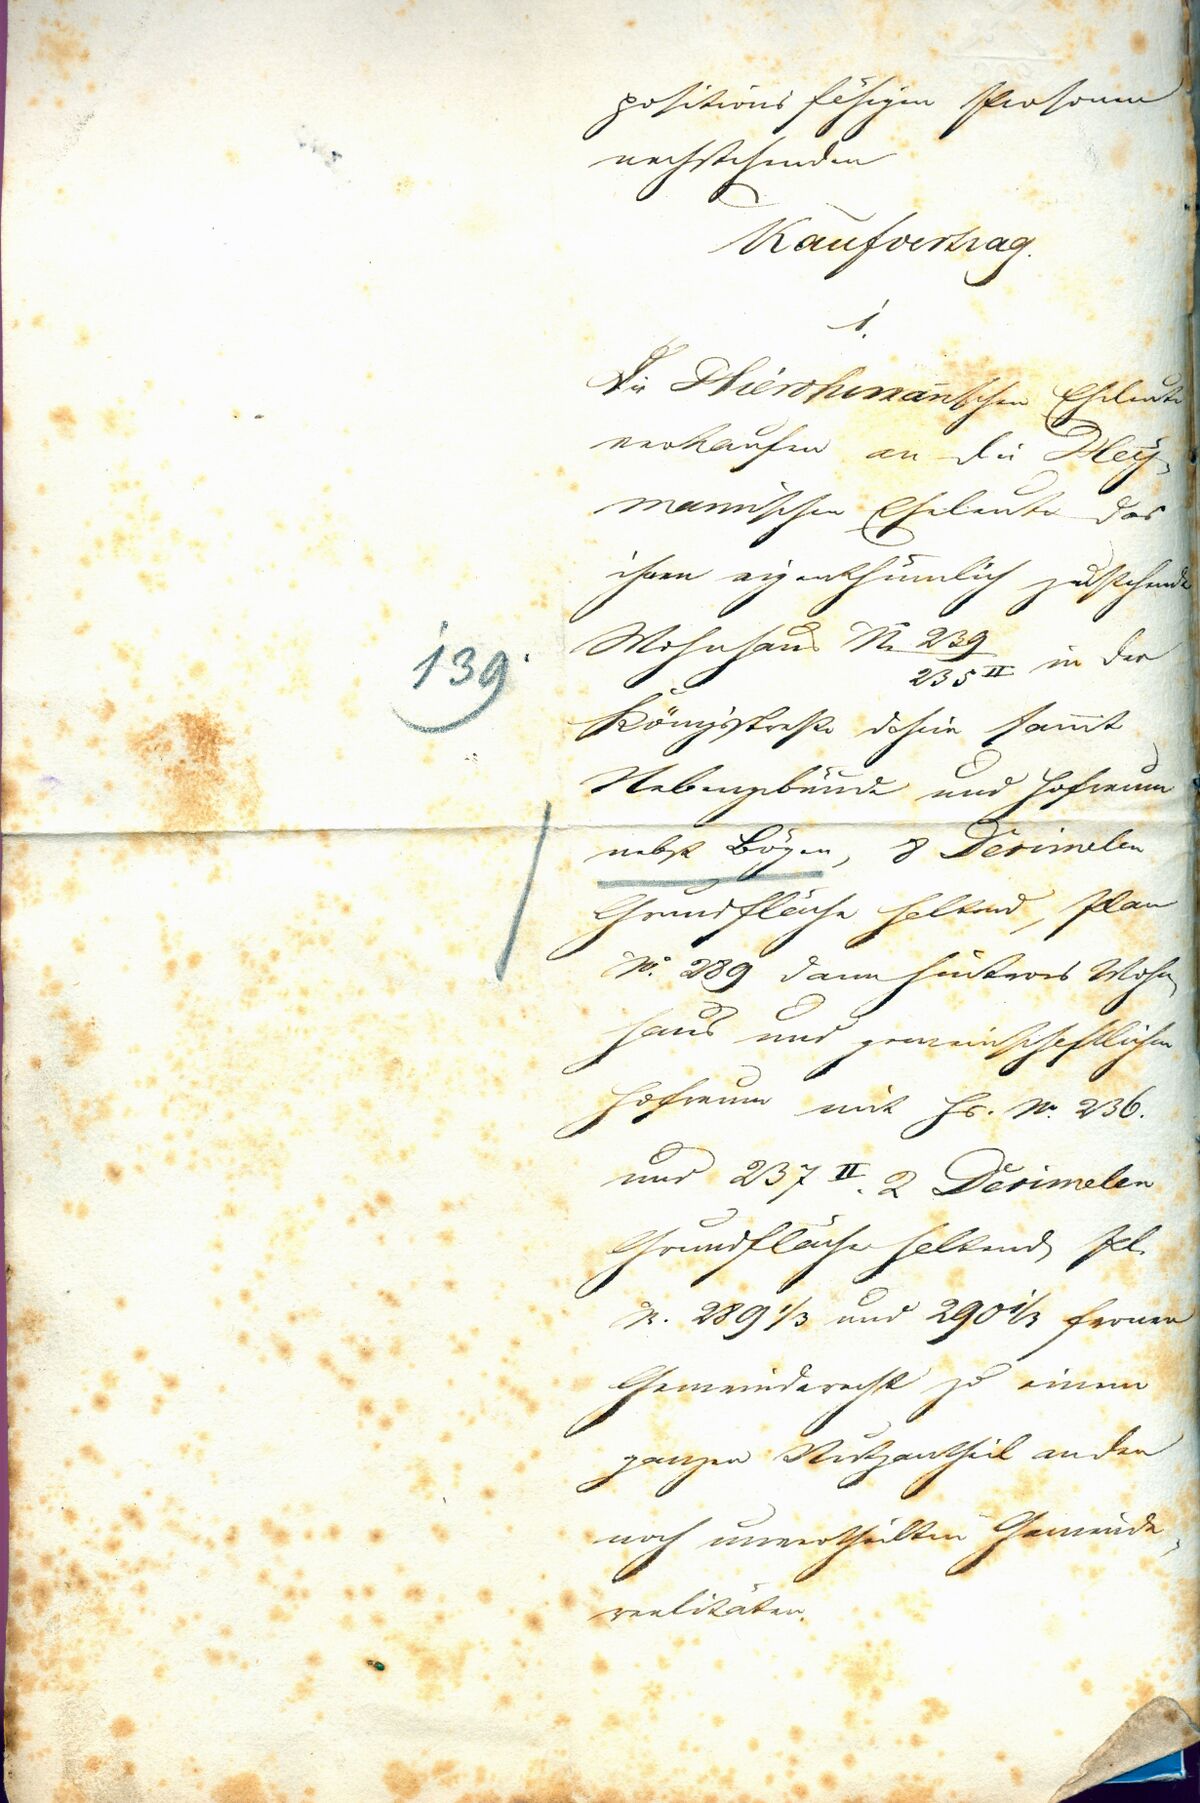 positions fähigen Personen
nachstehenden
Kaufvertrag.
1.
Die Hierohmannschen Eheleute
verkaufen an die Hey-
mannischen Eheleute das
ihnen eigenthümlich zustehende
Wohnhaus No 239
235 II in der
139.
Königsstraße dahin sammt
Nebengebäude und Hofraum
nebst Bögen, 8 Dezimalen
Grundfläche haltend, Plan
No. 289 dann hinteres Wohn-
haus und gemeinschaftlichen
Hofraum mit Hs. No. 236.
und 237 II. 2 Dezimalen
Grundfläche haltend, Pl.
N. 289 1/3 und 290 1/3 ferner
Gemeinderecht zu einem
ganzen Nutzantheil an den
noch unvertheilten Gemeinde-
realitäten.